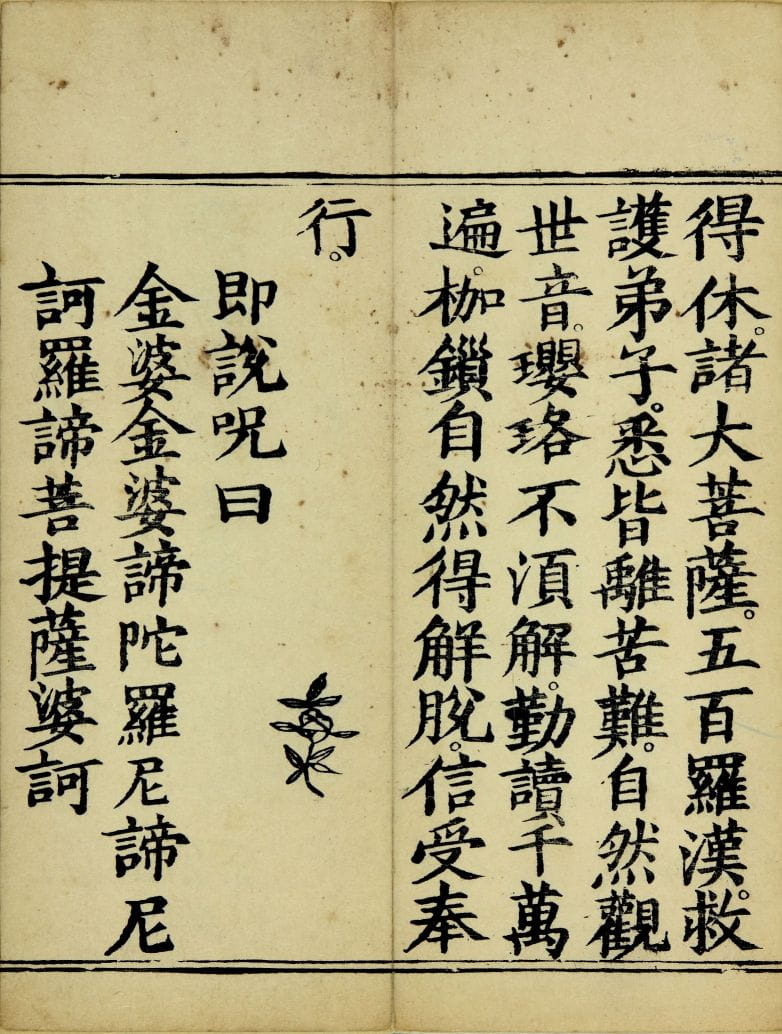 得休。諸大菩薩。五百羅漢。救
護弟子。悉皆離苦難。自然觀
世音。瓔珞不湏解。勤讀千萬
遍。枷鎖自然得解脫。信受奉
行。
即說呪曰
金婆金婆諦陀羅尼諦尼
訶羅諦菩提薩婆訶